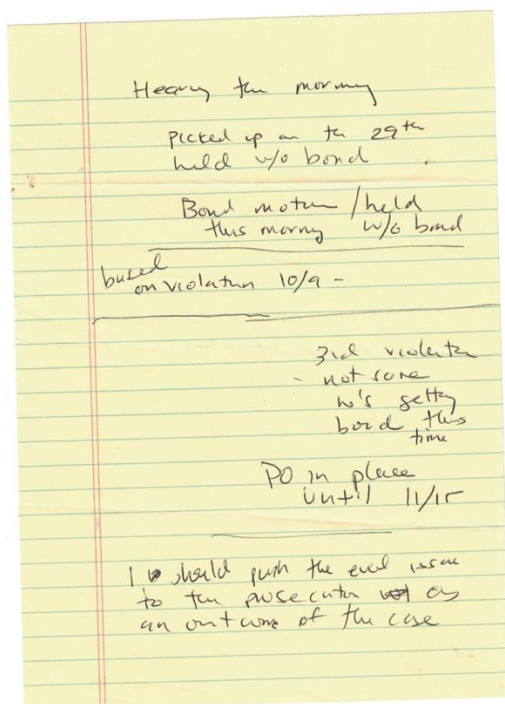 Hearing this morning
picked up on the 29th
held w/o bond
Bond motion / held
this morning w/o bond
based
on violation 10/9 -
3rd violation
- not sure
he's getting
bond this
time
PO in place
until 11/15
I should push the eval issue
to the prosecutor as
an outcome of the case